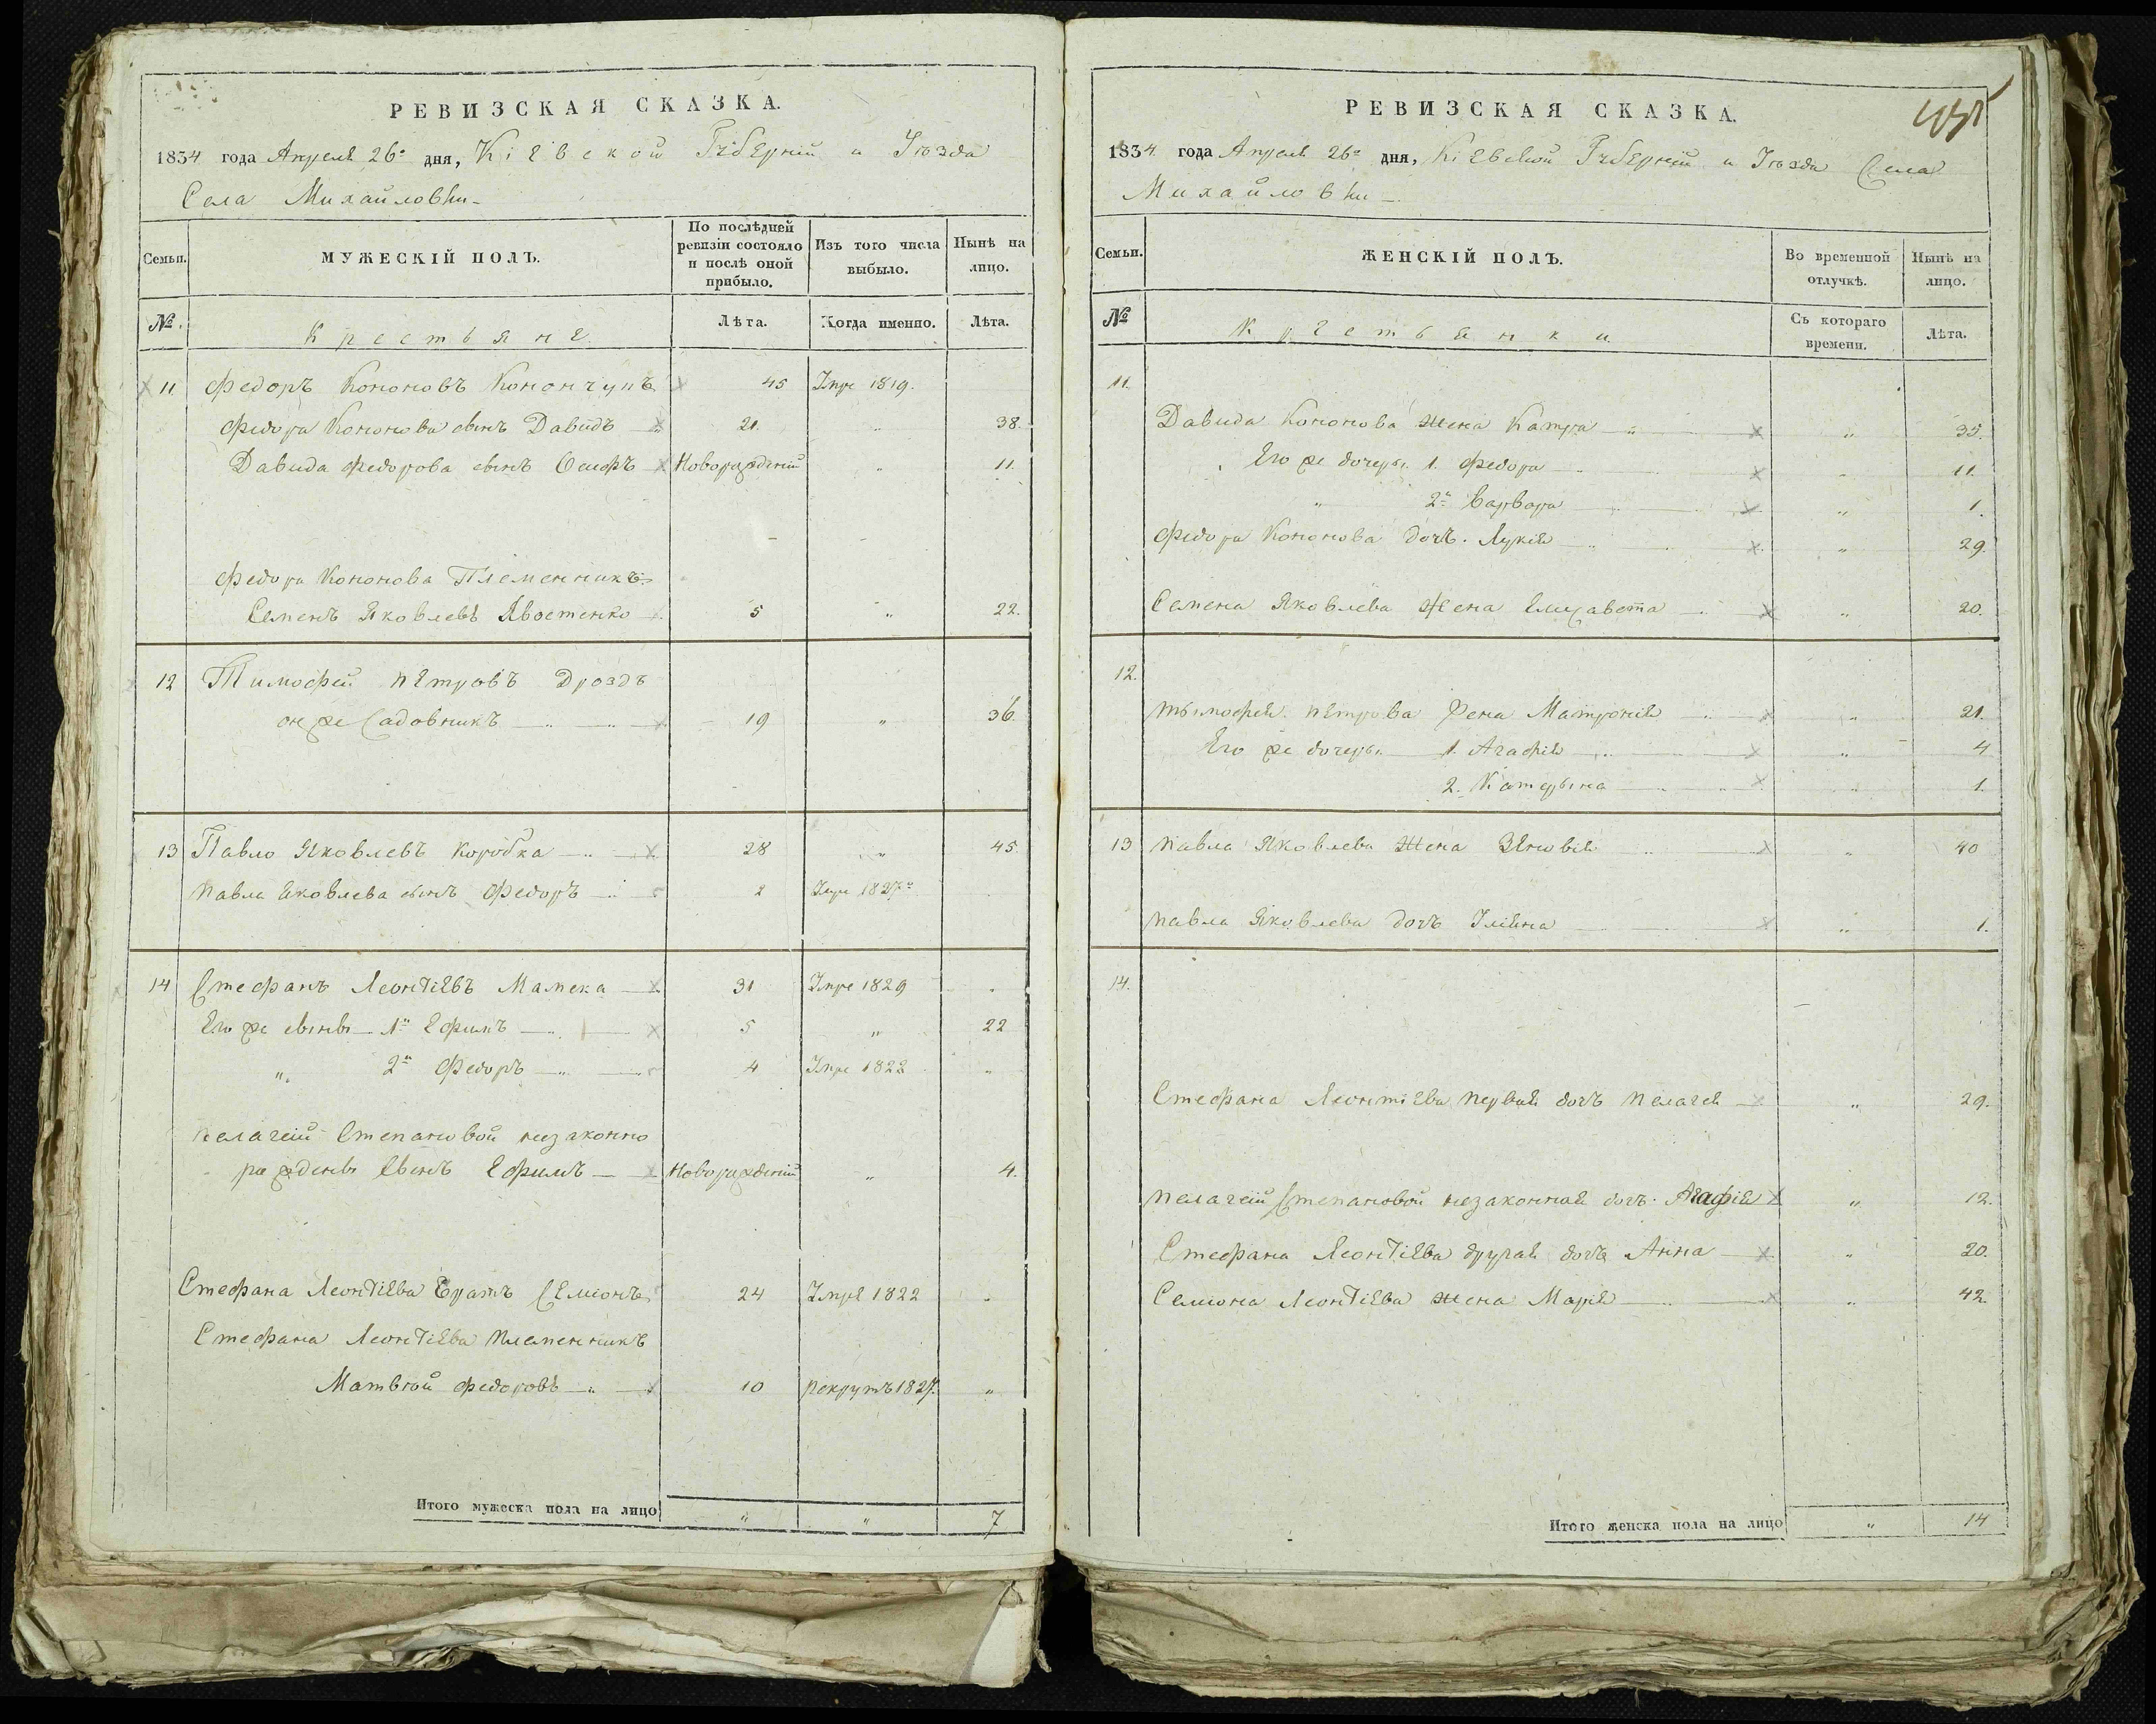 РЕВИЗСКАЯ СКАЗКА.
1834 года Апреля 26го дня, Кіевской Губерніи и Уѣзда
Села Михайловки
Семьи.
МУЖЕСКІЙ ПОЛЪ.
По послѣдней ревизіи состояло и послѣ оной прибыло.
Изъ того числа выбыло.
Нынѣ на лицо.
№.
Крестьяне
Лѣта.
Когда именно.
Лѣта.
11 Федоръ Кононовъ Конончукъ 45 Умре 1819.
Федора Кононова сынъ Давидъ 21. „ 38.
Давида Федорова сынъ Осифъ Новорожденій „ 11.
Федора Кононова Племенникъ
Семенъ Яковлевъ 5 „ 22.
12 Тимофей Петровъ Дроздъ
онже Садовникъ 19 „ 36.
13 Павло Яковлевъ Коробка 28 „ 45
Павла Яковлева сынъ Федоръ 2 Умре 1827го
14 Стефанъ Леонтіевъ Мамека 31 Умре 1829
Его же сынъ 1й Ефимъ 5 „ 22
„ 2й Федоръ 4 Умре 1822 „
Пелагеій Степановой незаконно
рожденъ сынъ Ефимъ Новорожденій „ 4.
Стефана Леонтіева братъ Семіонъ 24 Умре 1822 „
Стефана Леонтіева племенникъ
Матвѣй Федоровъ 10 рекрутъ 1827. „
Итого мужеска пола на лицо „ „ 7
РЕВИЗСКАЯ СКАЗКА.
1834 года Апреля 26го дня, Кіевской Губерніи и Уѣзда Села
Михайловки
Семьи.
ЖЕНСКІЙ ПОЛЪ.
Во временной отлучкѣ.
Нынѣ на лицо.
№
Крестьянки
Съ котораго времени.
Лѣта.
11.
Давида Кононова жена Катра „ 35.
Его же дочеры 1. Федора „ 11.
„ 2я Варвара „ 1.
Федора Кононова дочъ Лукія „ 29.
Семена Яковлева жена Елисавета „ 20.
12.
Тымофея Петрова жена Матронія „ 21.
Его же дочеры 1. Агафія „ 4
2. Катерына „ 1.
13 Павла Яковлева жена Зѣновія „ 40
Павла Яковлева дочъ Уліяна „ 1.
14.
Стефана Леонтіева первая дочъ Пелагея „ 29.
Пелагеій Степановой незаконная дочъ Агафія „ 12.
Стефана Леонтіева другая дочъ Анна „ 20.
Семіона Леонтіева жена Марія „ 42.
Итого женска пола на лицо „ 14